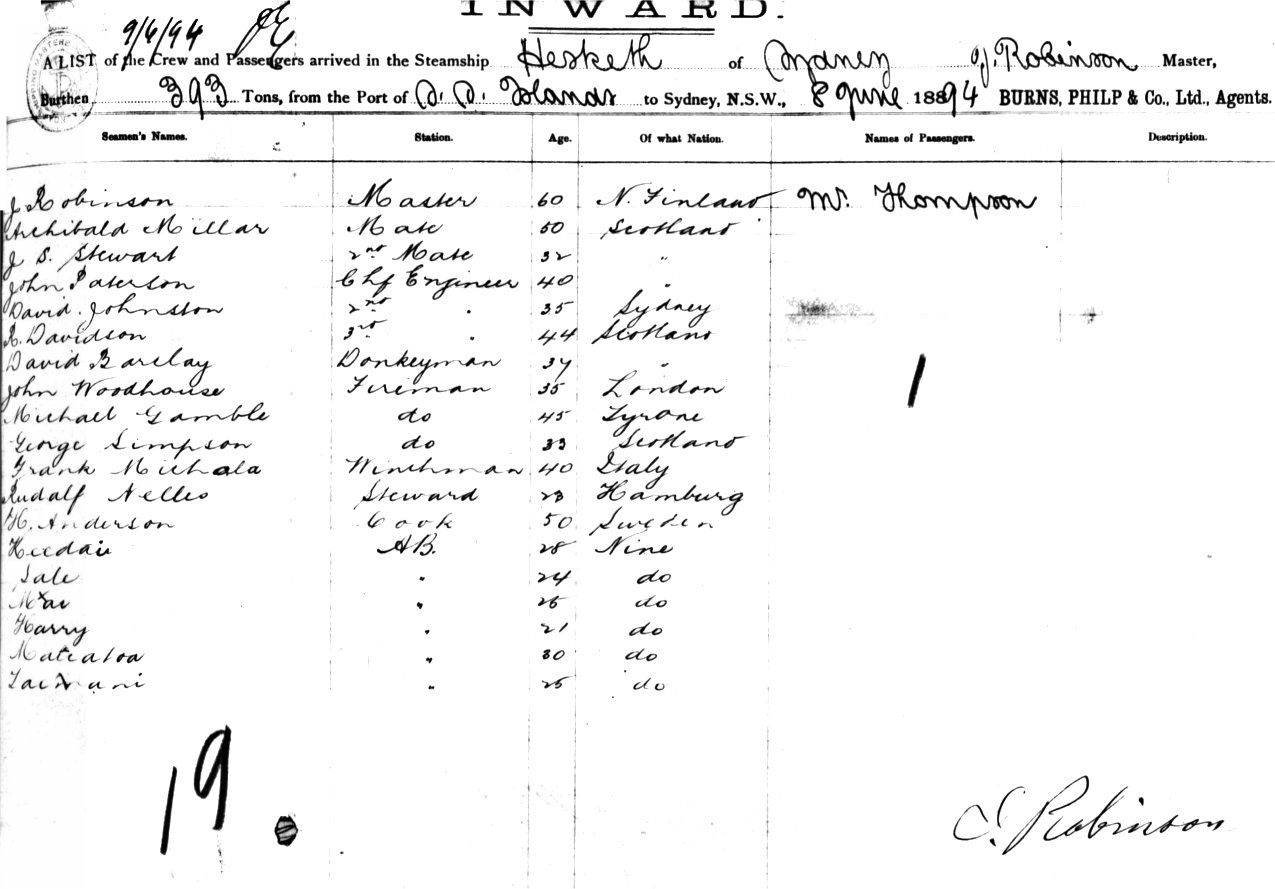 INWARD.
9/6/94
A LIST of the Crew and Passengers arrived in the Steamship Hesketh of Sydney J. Robinson Master,
Burthen 393 Tons, from the Port of S. S. Islands to Sydney, N.S.W., 8 June 1894 BURNS, PHILP & Co., Ltd., Agents.
Seamen's Names. Station. Age. Of what Nation. Names of Passengers. Description.
J Robinson Master 60 N. Finland Mr. Thompson
Archibald Millar Mate 50 Scotland
J S. Stewart 2nd Mate 32 "
John Paterson Chf Engineer 40 "
David Johnston 2nd " 35 Sydney
R. Davidson 3rd " 44 Scotland
David Barclay Donkeyman 37 "
John Woodhouse Fireman 35 London
1
Michael Gamble do 45 Tyrone
George Simpson do 33 Scotland
Frank Michala Winchman 40 Italy
Rudalf Nelles Steward 23 Hamburg
H. Anderson Cook 50 Sweden
A.B. 28 Nine
Sale " 24 do
" 25 do
Harry " 21 do
Mataloa " 30 do
" 25 do
19
J. Robinson